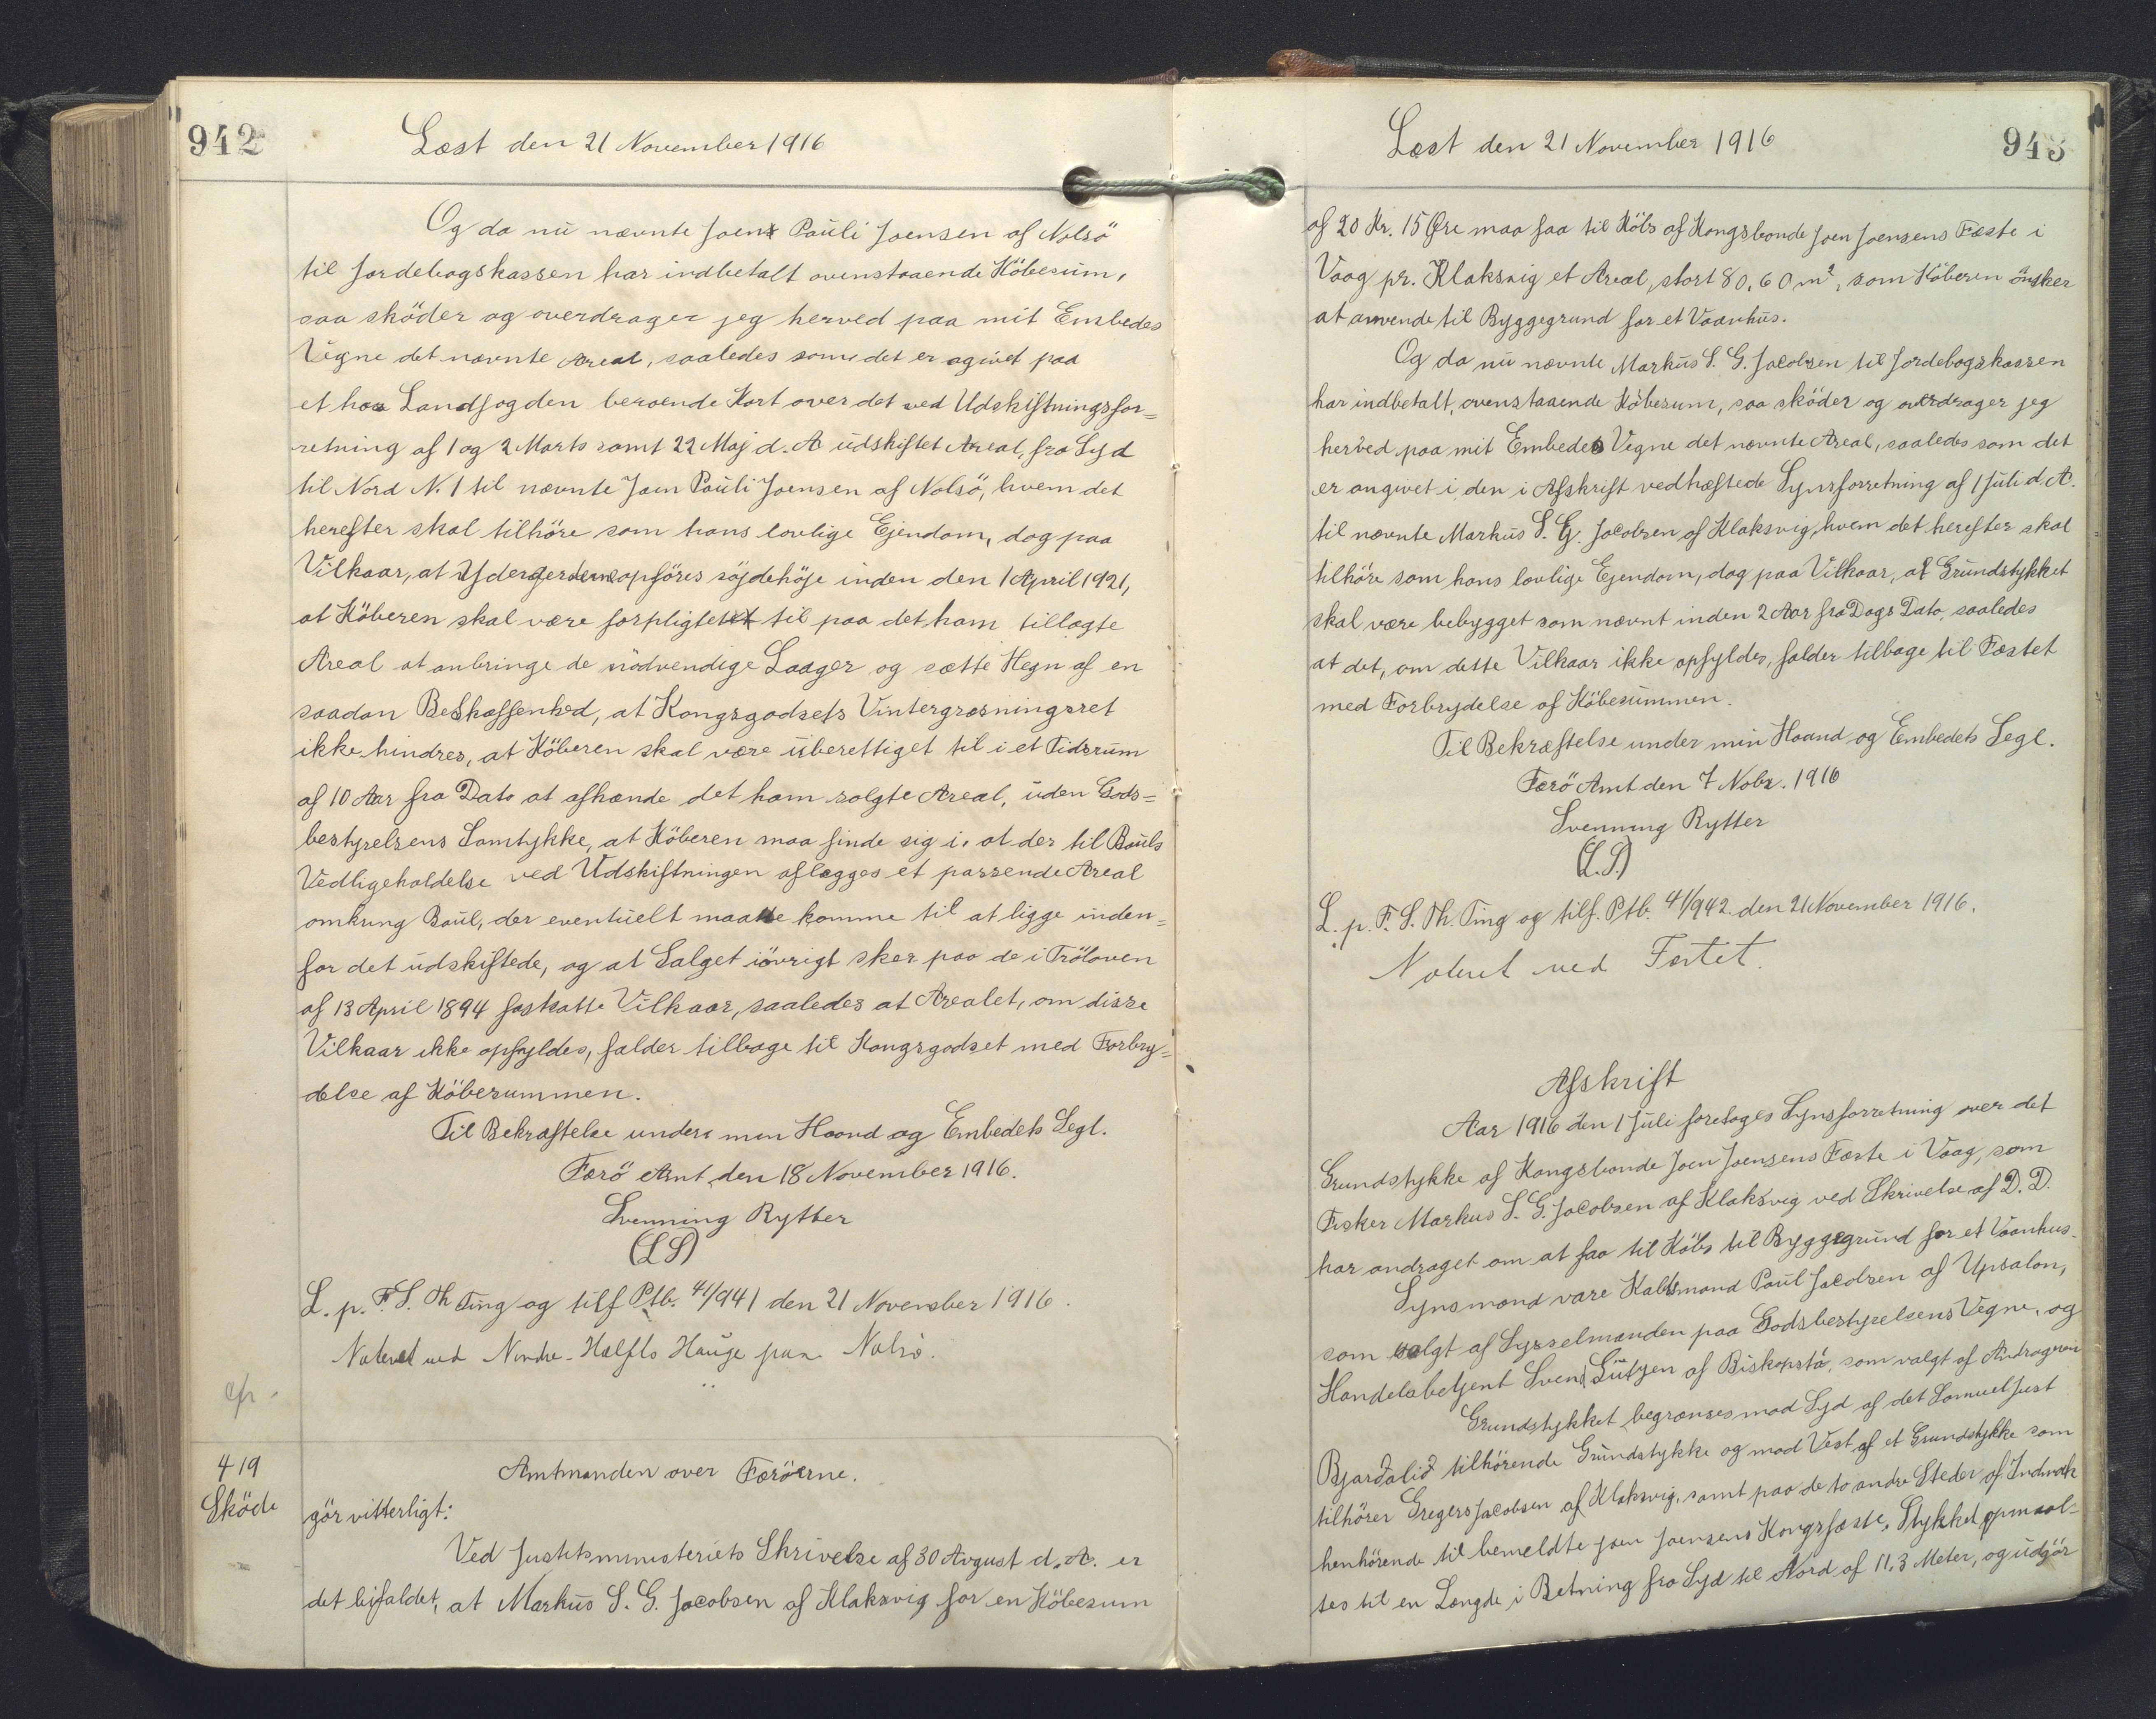 942
Læst den 21 November 1916
Og da nu nævnte Joen Pauli Joensen af Nolsö
til Jordebogskassen har indbetalt ovenstaaende Köbesum,
saa sköder og overdrager jeg herved paa mit Embedes
Vegne det nævnte Areal, saaledes som det er agivet paa
et hos Landfogden beroende Kort over det ved Udskiftningsfor=
retning af 1 og 2 Marts samt 22 Maj d. A udskiftet Areal, fra Syd
til Nord N. 1 til nævnte Joen Pauli Joensen af Nolsö, hvem det
herefter skal tilhöre som hans lovlige Ejendom, dog paa
Vilkaar, at Ydergærderne opföres söjdehöje inden den 1 April 1921,
at Köberen skal være forpligtet til paa det ham tillagte
Areal at anbringe de nödvendige Laager og sætte Hegn af en
saadan Beskaffenhed, at Kongsgodsets Vintergræsningsret
ikke hindres, at Köberen skal være uberettiget til i et Tidsrum
af 10 Aar fra Dato at afhænde det ham solgte Areal, uden Gods=
bestyrelsens Samtykke, at Köberen maa finde sig i, at der til Bouls
Vedligeholdelse ved Udskiftningen aflægges et passende Areal
omkring Boul, der eventuelt maatte komme til at ligge inden=
for det udskiftede, og at Salget iövrigt sker paa de i Tröloven
af 13 April 1894 fastsatte Vilkaar, saaledes at Arealet, om disse
Vilkaar ikke opfyldes, falder tilbage til Kongsgodset med Forbry=
delse af Köbesummen.
Til Bekræftelse under min Haand og Embedets Segl.
Færö Amt, den 18 November 1916.
Svenning Rytter
(L S)
L. p. F. S. Th Ting og tilf Ptb. 41/941 den 21 November 1916.
Noteret ved Nordre-Halfte Hauge paa Nolsö.
cfr.
419
Sköde
Amtmanden over Færöerne.
gör vitterligt:
Ved Justitsministeriets Skrivelse af 30 August d. A. er
det bifaldet, at Markus S. G. Jacobsen af Klaksvig for en Köbesum
943
Læst den 21 November 1916
af 20 Kr. 15 Øre maa faa til Köbs af Kongsbonde Joen Joensens Fæste i
Vaag pr. Klaksvig et Areal, stort 80,60 m², som Köberen önsker
at anvende til Byggegrund for et Vaanhus.
Og da nu nævnte Markus S. G. Jacobsen til Jordebogskassen
har indbetalt, ovenstaaende Köbesum, saa sköder og overdrager jeg
herved paa mit Embedes Vegne det nævnte Areal, saaledes som det
er angivet i den i Afskrift vedhæftede Synsforretning af 1 Juli d. A.
til nævnte Markus S. G. Jacobsen af Klaksvig, hvem det herefter skal
tilhöre som hans lovlige Ejendom, dog paa Vilkaar, at Grundstykket
skal være bebygget som nævnt inden 2 Aar fra Dags Dato, saaledes
at det, om dette Vilkaar ikke opfyldes, falder tilbage til Fæstet
med Forbrydelse af Köbesummen.
Til Bekræftelse under min Haand og Embedets Segl.
Færö Amt den 7 Nobr. 1916
Svenning Rytter
(L.S.)
L. p. F. S. Th. Ting og tilf. Ptb. 41/942 den 21 November 1916.
Noteret ved Festet.
Afskrift
Aar 1916 den 1 Juli foretoges Synsforretning over det
Grundstykke af Kongsbonde Joen Joensens Fæste i Vaag, som
Fisker Markus S. G. Jacobsen af Klaksvig ved Skrivelse af D. D.
har andraget om at faa til Köbs til Byggegrund for et Vaanhus.
Synsmænd vare Kalvsmand Poul Jacobsen af Upsalon,
som valgt af Sysselmanden paa Godsbestyrelsens Vegne, og
Handelsbetjent Svend Lützen af Biskopstö, som valgt af Andrageren
Grundstykket begrænses mod Syd af det Samuel Just
Bjarðalið tilhörende Grundstykke og mod Vest af et Grundstykke som
tilhörer Gregers Jacobsen af Klaksvig, samt paa de to andre Steder af Indmark
henhörende til bemeldte Joen Joensens Kongsfæste. Stykket opmaal-
tes til en Længde i Retning fra Syd til Nord af 11,3 Meter, og udgör